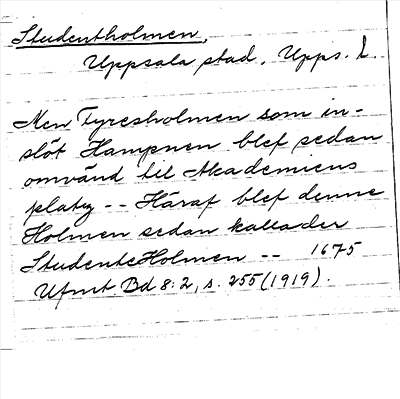 Studentholmen,
Uppsala stad, Upps. L.
Men Fyresholmen som in-
slöt Hampnen blef sedan
omvänd til Academiens
platz -- Häraf blef denne
Holmen sedan kallader
StudenteHolmen -- 1675
Ufmt Bd 8:2, s. 255 (1919).